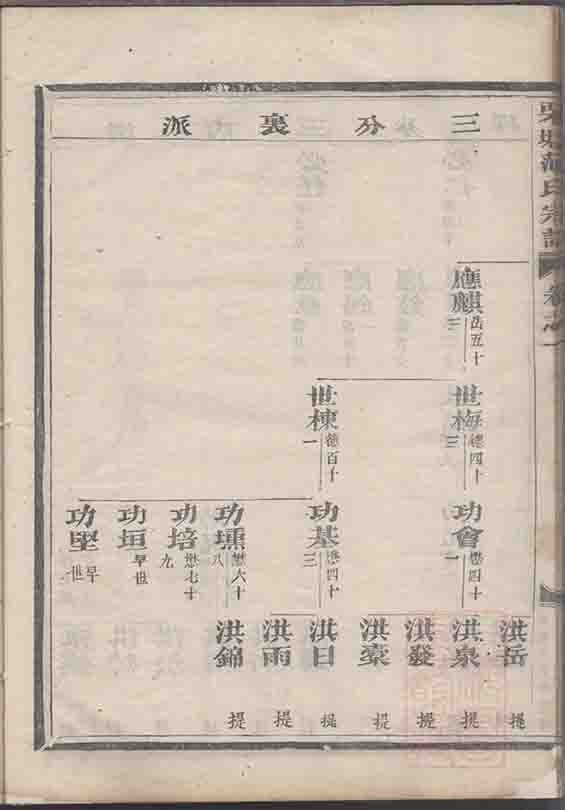 三分裏派
應麒 岳五十三
世梅 德四十三
世棟 德百十一
功會 懋四十一
功基 懋四十三
功壎 懋六十八
功培 懋七十九
功垣 早世
功堅 早世
洪岳 提
洪泉 提
洪發 提
洪豪 提
洪日 提
洪雨 提
洪錦 提
氏宗譜